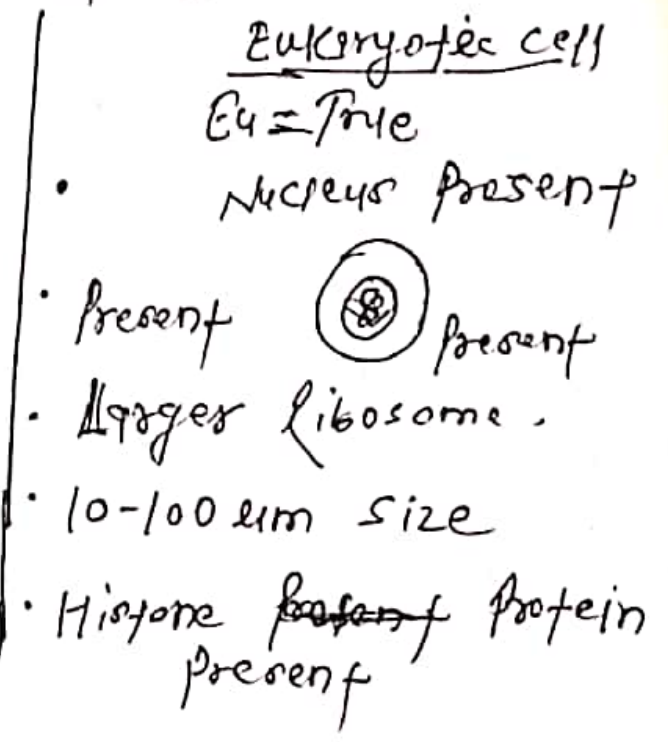 Eukeryotic cell
Eu = True
• Nucleus Present
• Present Present
• Larger Ribosome.
• 10-100 um size
• Histone Present Protein
Present